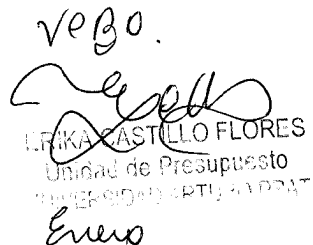 VºBº.
ERIKA CASTILLO FLORES
Unidad de Presupuesto
UNIVERSIDAD ARTURO PRAT
Enero